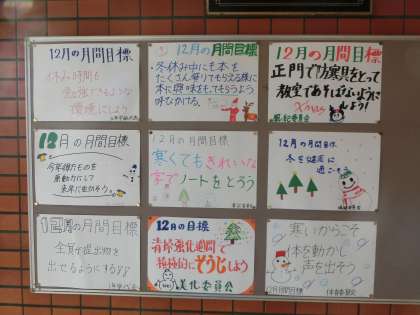 12月の月間目標
休み時間も
勉強できるような
環境にしよう
12月の月間目標
・冬休み中にも本を
たくさん借りてもらえる様に
本に興味をもってもらうよう
呼びかける。
12月の月間目標
正門で防寒具をとって
教室であそばないように
しよう!
Xmas
風紀委員会
12月の月間目標
今年得たものを
原動力にして
来年に活かそう。
12月の月間目標
寒くてもきれいな
字でノートをとろう
12月の月間目標
冬を健康に
過ごそう
の月間目標
全員が提出物を
出せるようにする
12月の目標
清掃強化週間で
積極的にそうじしよう
美化委員会
寒いからこそ
体を動かし
声を出そう
12月月間目標